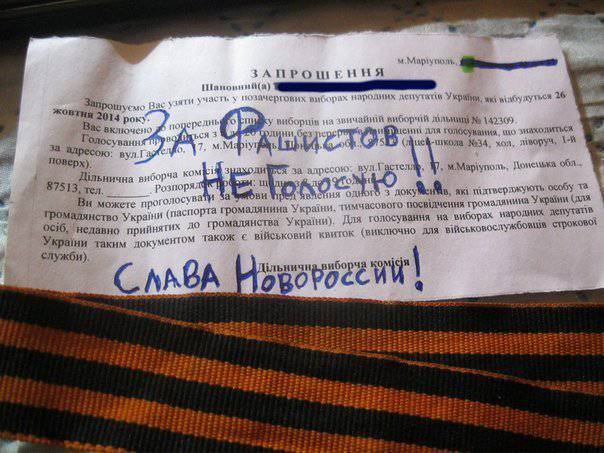 м.Маріуполь,
ЗАПРОШЕННЯ
Шановний(а)
Запрошуємо Вас узяти участь у позачергових виборах народних депутатів України, які відбудуться 26
жовтня 2014 року.
Вас включено до попереднього списку виборців на звичайній виборчій дільниці № 142309.
Голосування проводиться з години без перерви для голосування, що знаходиться
за адресою: вул.Гастелло, 17, м.Маріуполь, Донецька школа №34, хол, ліворуч, 1-й
поверх).
Дільнична виборча комісія знаходиться за адресою: вул.Гастелло, 17, м.Маріуполь, Донецька обл.,
87513, тел. Розпорядок
Ви можете проголосувати за умови пред'явлення одного з документів, які підтверджують особу та
громадянство України (паспорта громадянина України, тимчасового посвідчення громадянина України (для
осіб, недавно прийнятих до громадянства України). Для голосування на виборах народних депутатів
України таким документом також є військовий квиток (виключно для військовослужбовців строкової
служби).
Дільнична виборча комісія
За Фашистов
не Голосую!!
Слава Новороссии!